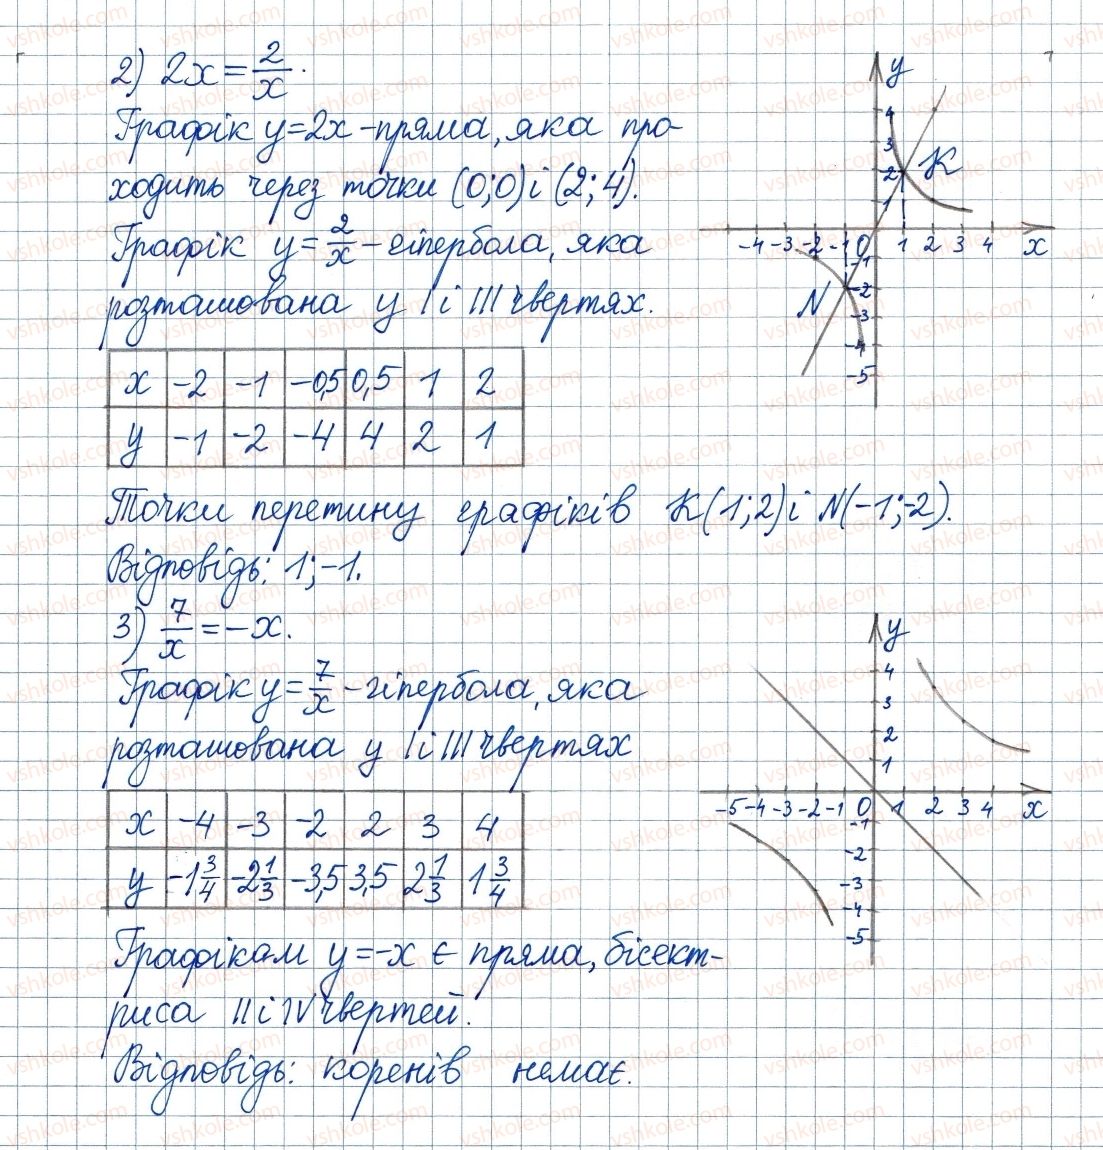 2) 2x = 2/x.
Графік y=2x - пряма, яка про-
ходить через точки (0;0) і (2;4).
Графік y = 2/x - гіпербола, яка
розташована у I і III чвертях.
x -2 -1 -0,5 0,5 1 2
y -1 -2 -4 4 2 1
Точки перетину графіків K(1;2) і N(-1;-2).
Відповідь: 1; -1.
3) 7/x = -x.
Графік y = 7/x - гіпербола, яка
розташована у I і III чвертях
x -4 -3 -2 2 3 4
y -1 3/4 -2 1/3 -3,5 3,5 2 1/3 1 3/4
Графікам y = -x є пряма, бісект-
риса II і IV чвертей.
Відповідь: коренів немає.
y
4
3
2
1
K
-4 -3 -2 -1 0 1 2 3 4 x
-1
-2
-3
-4
-5
N
y
4
3
2
1
-5 -4 -3 -2 -1 0 1 2 3 4 x
-1
-2
-3
-4
-5
vshkole.com